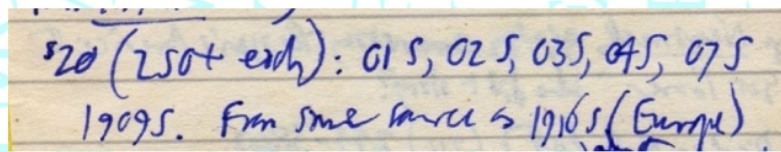 $20 (250+ each): 01 S, 02 S, 03S, 04S, 07 S
1909S. From same source as 1916s (Europe)